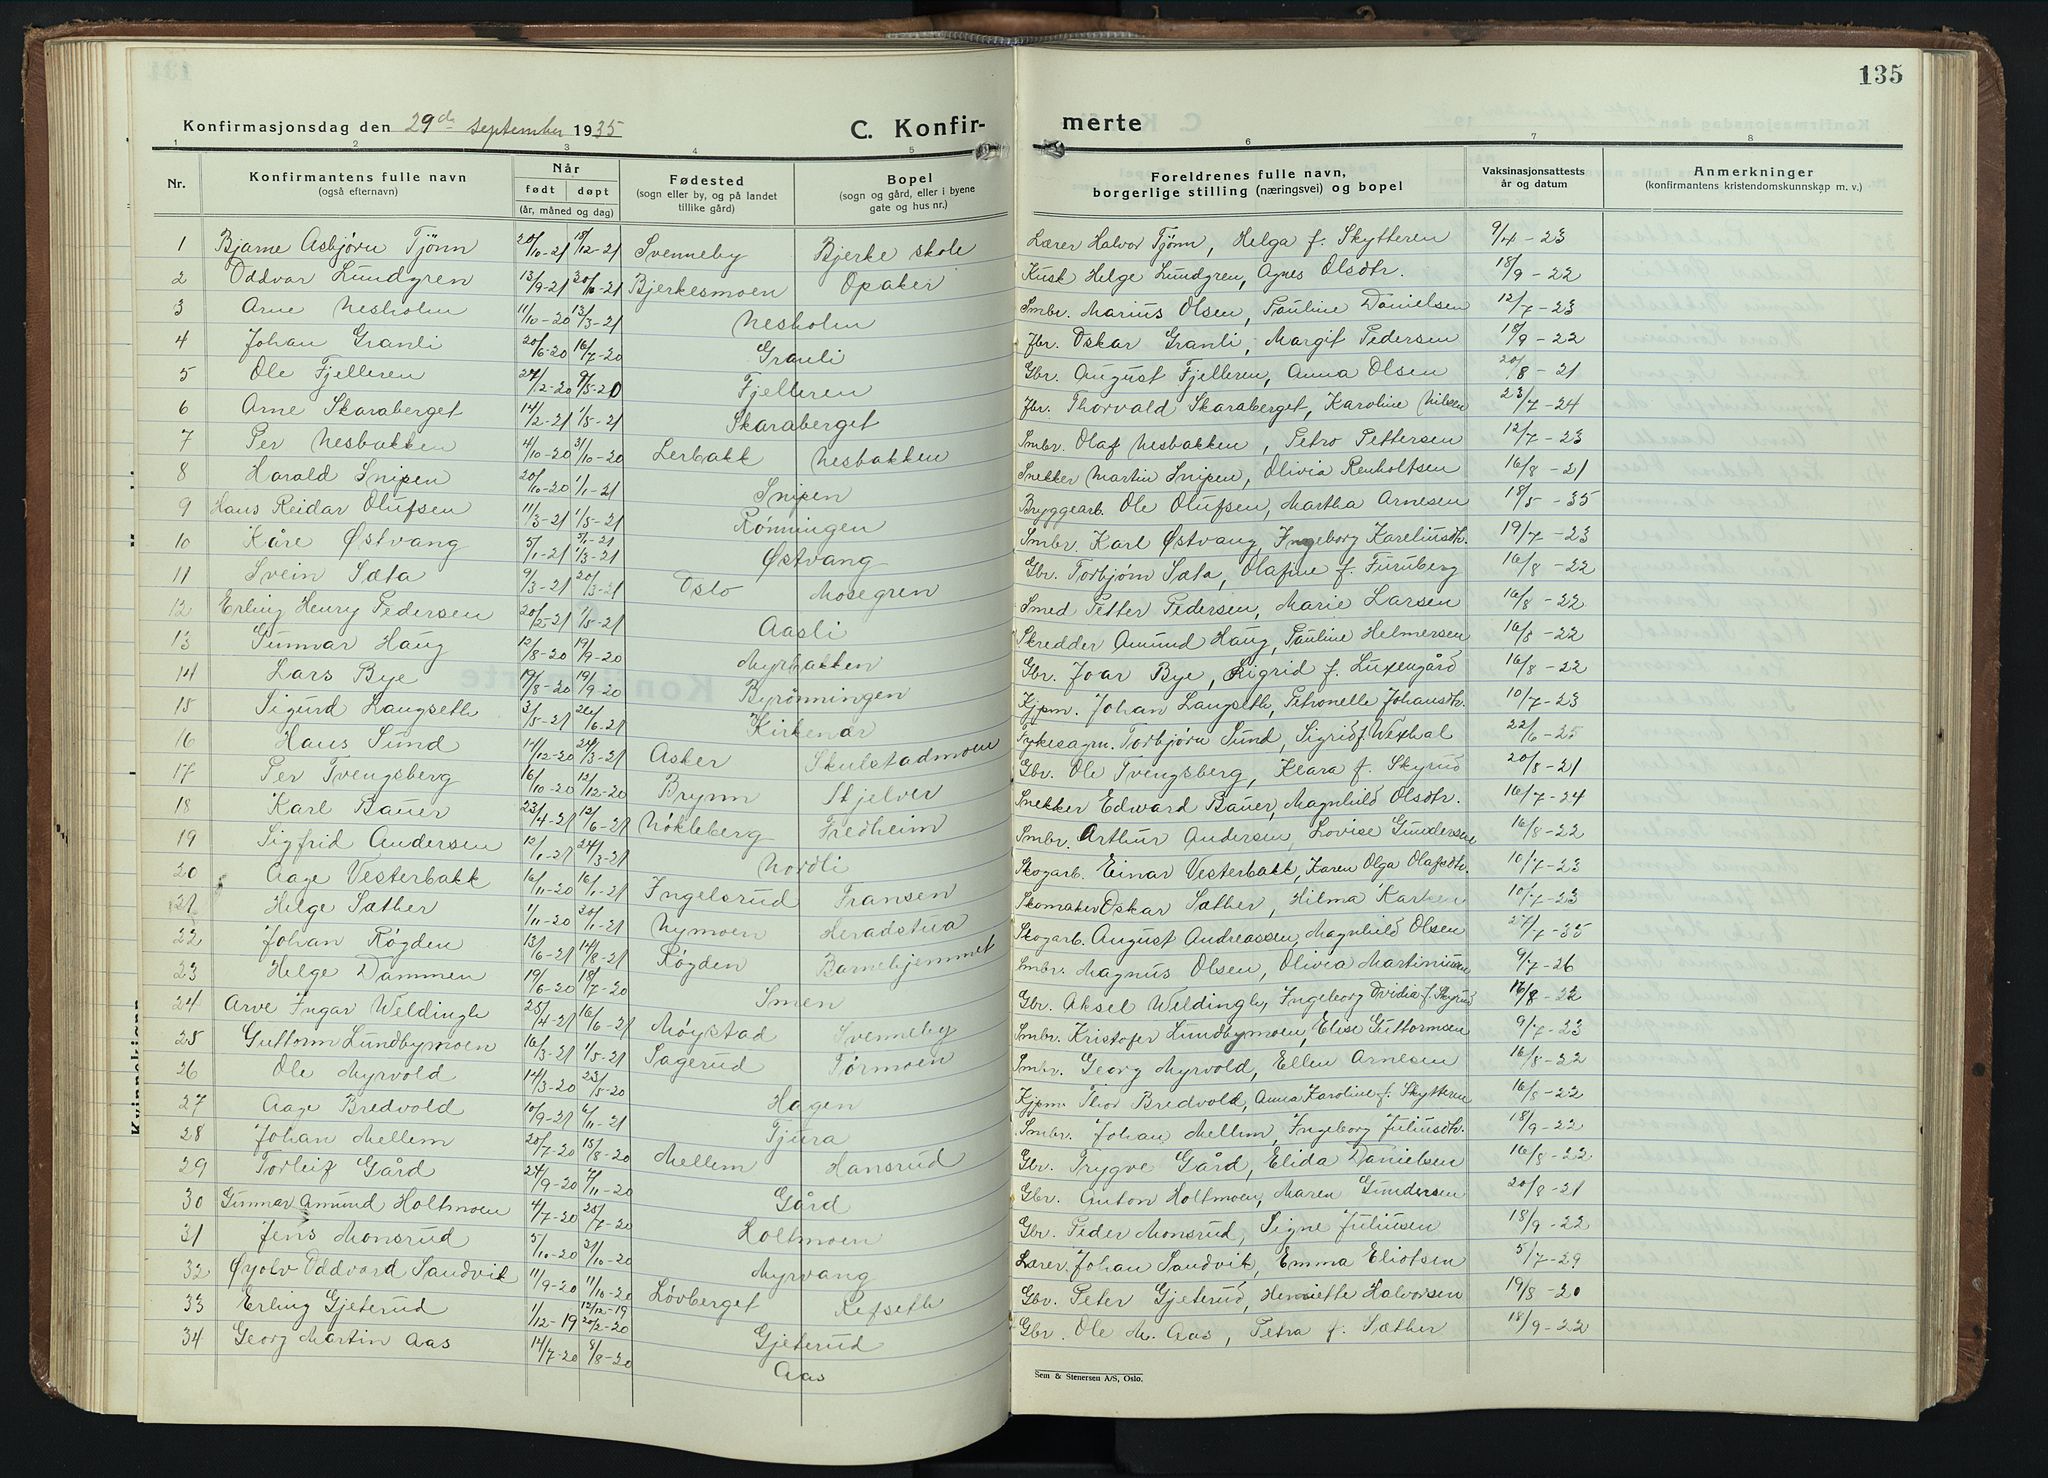 135
Konfirmasjonsdag den 29de september 1935
C. Konfir-
merte
1 2 3 4 5 6 7 8
Nr. Konfirmantens fulle navn (også efternavn) Når født døpt (år, måned og dag) Fødested (sogn eller by, og på landet tillike gård) Bopel (sogn og gård, eller i byene gate og hus nr.) Foreldrenes fulle navn, borgerlige stilling (næringsvei) og bopel Vaksinasjonsattests år og datum Anmerkninger (konfirmantens kristendomskunnskap m. v.)
1 Bjarne Asbjørn Tjønn 20/10-21 18/12-21 Svenneby Bjerke skole Lærer Halvor Tjønn, Helga f. Skytteren 9/4-23
2 Oddvar Lundgren 13/9-21 30/10-21 Bjerkesmoen Opaker Kusk Helge Lundgren, Agnes Olsdtr. 18/9-22
3 Arne Nesholm 11/10-20 13/3-21 Nesholm Smbr. Marius Olsen, Pauline Danielsen 12/7-23
4 Johan Granli 20/6-20 16/7-20 Granli Fbr. Oskar Granli, Margit Pedersen 18/9-22
5 Ole Fjelleren 27/2-20 9/5-20 Fjelleren Gbr. August Fjelleren, Anna Olsen 20/8-21
6 Arne Skaraberget 14/2-21 1/5-21 Skaraberget Fbr. Thorvald Skaraberget, Karoline Nilsen 23/7-24
7 Per Nesbakken 4/10-20 31/10-20 Lerbakk Nesbakken Smbr. Olaf Nesbakken, Petro Pettersen 12/7-23
8 Harald Snipen 20/10-20 1/1-21 Snipen Snekker Martin Snipen, Olivia Renholtsen 16/8-21
9 Hans Reidar Olufsen 11/3-21 1/5-21 Rønningen Bryggearb. Ole Olufsen, Martha Arnesen 18/5-35
10 Kåre Østvang 5/1-21 1/3-21 Østvang Smbr. Karl Østvang, Ingeborg Kareliusdtr. 19/7-23
11 Svein Sæta 9/3-21 20/3-21 Oslo Mosegren Gbr. Torbjørn Sæta, Olafine f. Furuberg 16/8-22
12 Erling Henry Pedersen 20/2-21 1/5-21 Aasli Smed Petter Pedersen, Marie Larsen 16/8-22
13 Gunnar Haug 12/8-20 19/9-20 Myrbakken Skredder Amund Haug, Pauline Helmersen 16/8-22
14 Lars Bye 19/8-20 19/9-20 Byrønningen Gbr. Joar Bye, Sigrid f. Luxengård 16/8-22
15 Sigurd Langseth 3/5-21 26/6-21 Kirkenær Kjpm. Johan Langseth, Petronelle Johansdtr. 10/7-23
16 Hans Sund 14/12-20 24/3-21 Asker Skulstadmoen Torbjørn Sund, Sigrid f. Wexhal 22/6-25
17 Per Tvengsberg 16/10-20 12/12-20 Brynn Skjelver Gbr. Ole Tvengsberg, Klara f. Skyrud 20/8-21
18 Karl Bauer 23/4-21 12/6-21 Nøkleberg Fredheim Snekker Edward Bauer, Magnhild Olsdtr. 16/7-24
19 Sigfrid Andersen 12/1-21 24/3-21 Nordli Smbr. Arthur Andersen, Lovise Gundersen 16/8-22
20 Aage Vesterbakk 16/11-20 16/1-21 Ingelsrud Fransen Skogarb. Einar Vesterbakk, Karen Olga Olafsdtr. 10/7-23
21 Helge Sæther 1/11-20 20/1-21 Nymoen Heradstua Skomaker Oskar Sæther, Hilma Karken 10/7-23
22 Johan Røgden 13/6-21 14/8-21 Røgden Barnehjemmet Skogarb. August Andreassen, Magnhild Olsen 27/7-35
23 Helge Dammen 19/6-20 18/7-20 Smen Smbr. Magnus Olsen, Olivia Martiniusen 9/7-26
24 Arve Ingar Weldingh 25/4-21 16/6-21 Møystad Svenneby Gbr. Aksel Weldingh, Ingeborg Ovidia f. Skyrud 16/8-22
25 Guttorm Lundbymoen 16/3-21 1/5-21 Sagerud Tørmoen Smbr. Kristofer Lundbymoen, Elise Guttormsen 9/7-23
26 Ole Myrvold 14/3-20 23/5-20 Hagen Smbr. Georg Myrvold, Ellen Arnesen 16/8-22
27 Aage Bredvold 10/9-21 6/11-21 Tjura Kjpm. Thor Bredvold, Anna Karoline f. Skytteren 16/8-22
28 Johan Mellem 20/7-20 15/8-20 Mellem Hansrud Smbr. Johan Mellem, Ingeborg Juliusdtr. 18/9-22
29 Torleif Gård 24/9-20 7/11-20 Gård Gbr. Trygve Gård, Elida Danielsen 16/8-22
30 Gunnar Amund Holtmoen 4/7-20 25/7-20 Holtmoen Gbr. Anton Holtmoen, Maren Gundersen 20/8-21
31 Jens Monsrud 5/10-20 31/10-20 Myrvang Gbr. Peder Monsrud, Signe Juliusen 18/9-22
32 Øyolv Oddvard Sandvik 11/9-20 11/10-20 Løvberget Refseth Lærer Johan Sandvik, Emma Eliotsen 5/7-29
33 Erling Gjeterud 1/12-19 20/2-20 Gjeterud Gbr. Peter Gjeterud, Henriette Halvorsen 19/8-20
34 Georg Martin Aas 14/7-20 8/8-20 Aas Gbr. Ole M. Aas, Petra f. Sæther 18/9-22
Sem & Stenersen A/S, Oslo.